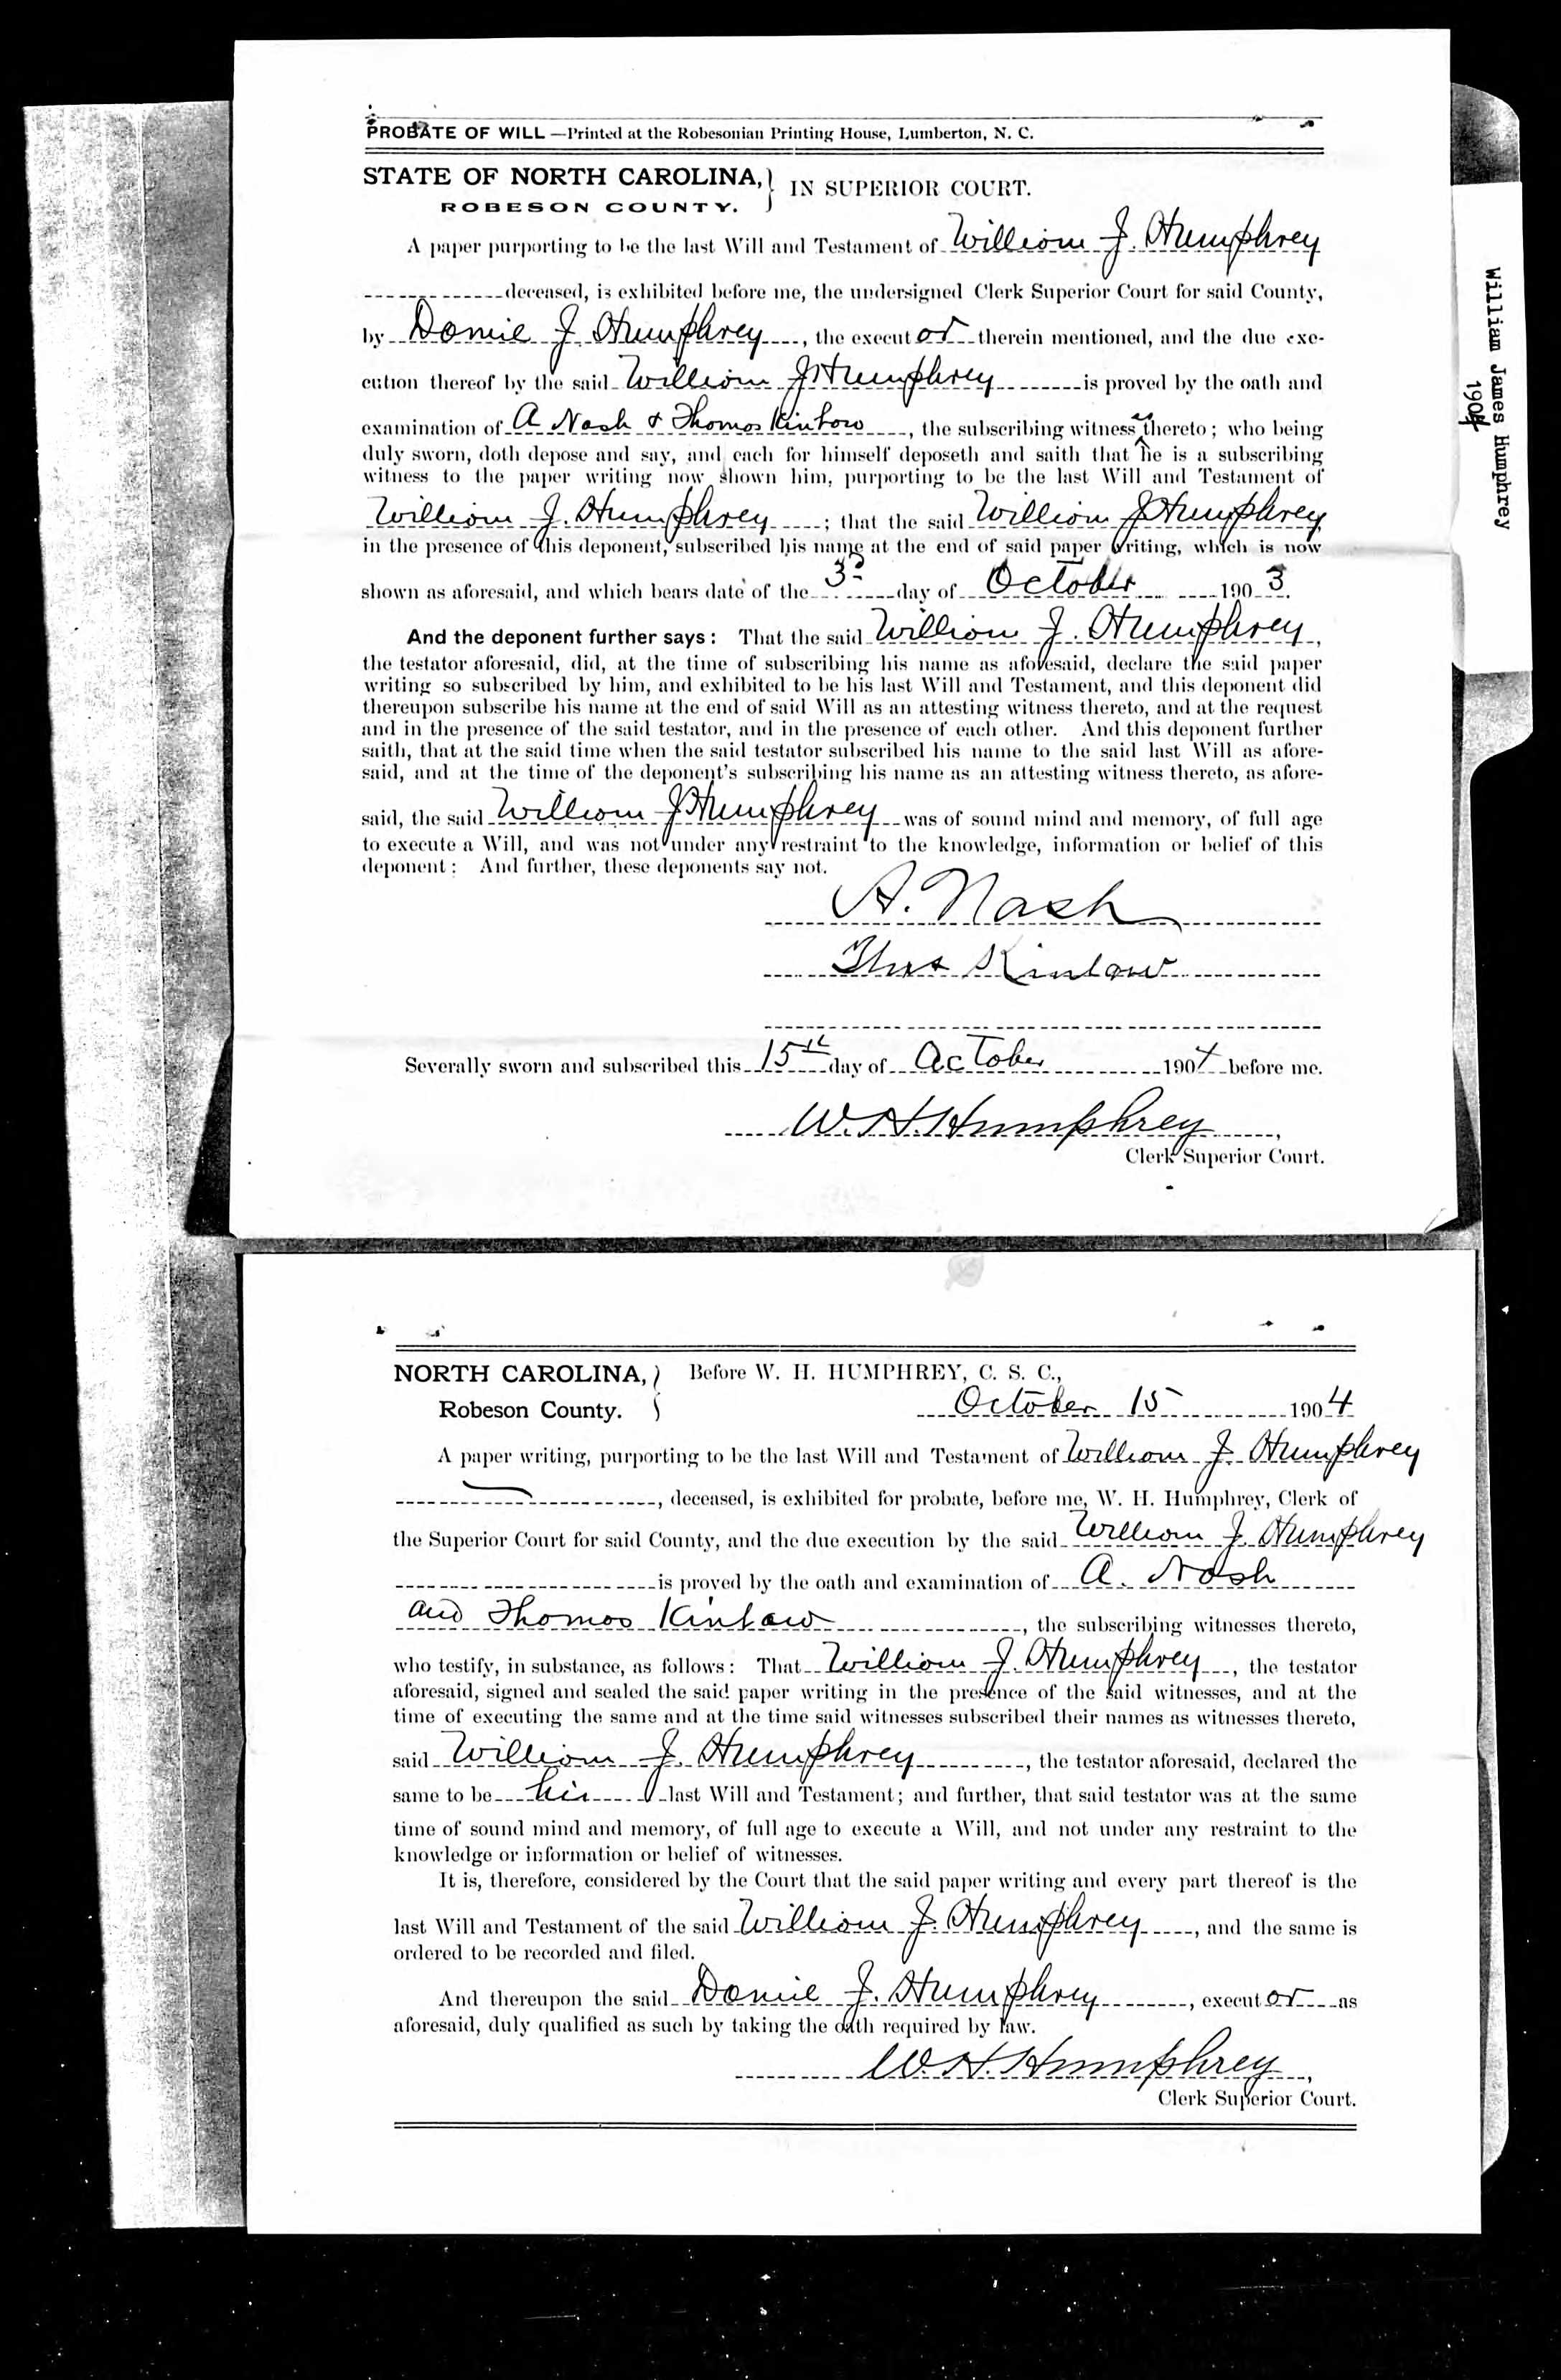 PROBATE OF WILL —Printed at the Robesonian Printing House, Lumberton, N. C.
STATE OF NORTH CAROLINA, } IN SUPERIOR COURT.
ROBESON COUNTY.
A paper purporting to be the last Will and Testament of William J. Humphrey
deceased, is exhibited before me, the undersigned Clerk Superior Court for said County,
by Domie J. Humphrey, the executor therein mentioned, and the due exe-
cution thereof by the said William J Humphrey is proved by the oath and
examination of A Nash & Thomas Kinlaw, the subscribing witnesses thereto; who being
duly sworn, doth depose and say, and each for himself deposeth and saith that he is a subscribing
witness to the paper writing now shown him, purporting to be the last Will and Testament of
William J. Humphrey; that the said William J Humphrey
in the presence of this deponent, subscribed his name at the end of said paper writing, which is now
shown as aforesaid, and which bears date of the 3d day of October 1903.
And the deponent further says: That the said William J. Humphrey,
the testator aforesaid, did, at the time of subscribing his name as aforesaid, declare the said paper
writing so subscribed by him, and exhibited to be his last Will and Testament, and this deponent did
thereupon subscribe his name at the end of said Will as an attesting witness thereto, and at the request
and in the presence of the said testator, and in the presence of each other. And this deponent further
saith, that at the said time when the said testator subscribed his name to the said last Will as afore-
said, and at the time of the deponent's subscribing his name as an attesting witness thereto, as afore-
said, the said William J Humphrey was of sound mind and memory, of full age
to execute a Will, and was not under any restraint to the knowledge, information or belief of this
deponent: And further, these deponents say not.
A. Nash
Thos Kinlaw
Severally sworn and subscribed this 15th day of October 1904 before me.
W. H. Humphrey,
Clerk Superior Court.
William James Humphrey
1904
NORTH CAROLINA, } Before W. H. HUMPHREY, C. S. C.,
Robeson County. October 15 1904
A paper writing, purporting to be the last Will and Testament of William J. Humphrey
, deceased, is exhibited for probate, before me, W. H. Humphrey, Clerk of
the Superior Court for said County, and the due execution by the said William J. Humphrey
is proved by the oath and examination of A. Nash
and Thomas Kinlaw, the subscribing witnesses thereto,
who testify, in substance, as follows: That William J. Humphrey, the testator
aforesaid, signed and sealed the said paper writing in the presence of the said witnesses, and at the
time of executing the same and at the time said witnesses subscribed their names as witnesses thereto,
said William J. Humphrey, the testator aforesaid, declared the
same to be his last Will and Testament; and further, that said testator was at the same
time of sound mind and memory, of full age to execute a Will, and not under any restraint to the
knowledge or information or belief of witnesses.
It is, therefore, considered by the Court that the said paper writing and every part thereof is the
last Will and Testament of the said William J. Humphrey, and the same is
ordered to be recorded and filed.
And thereupon the said Domie J. Humphrey, executor as
aforesaid, duly qualified as such by taking the oath required by law.
W. H. Humphrey,
Clerk Superior Court.